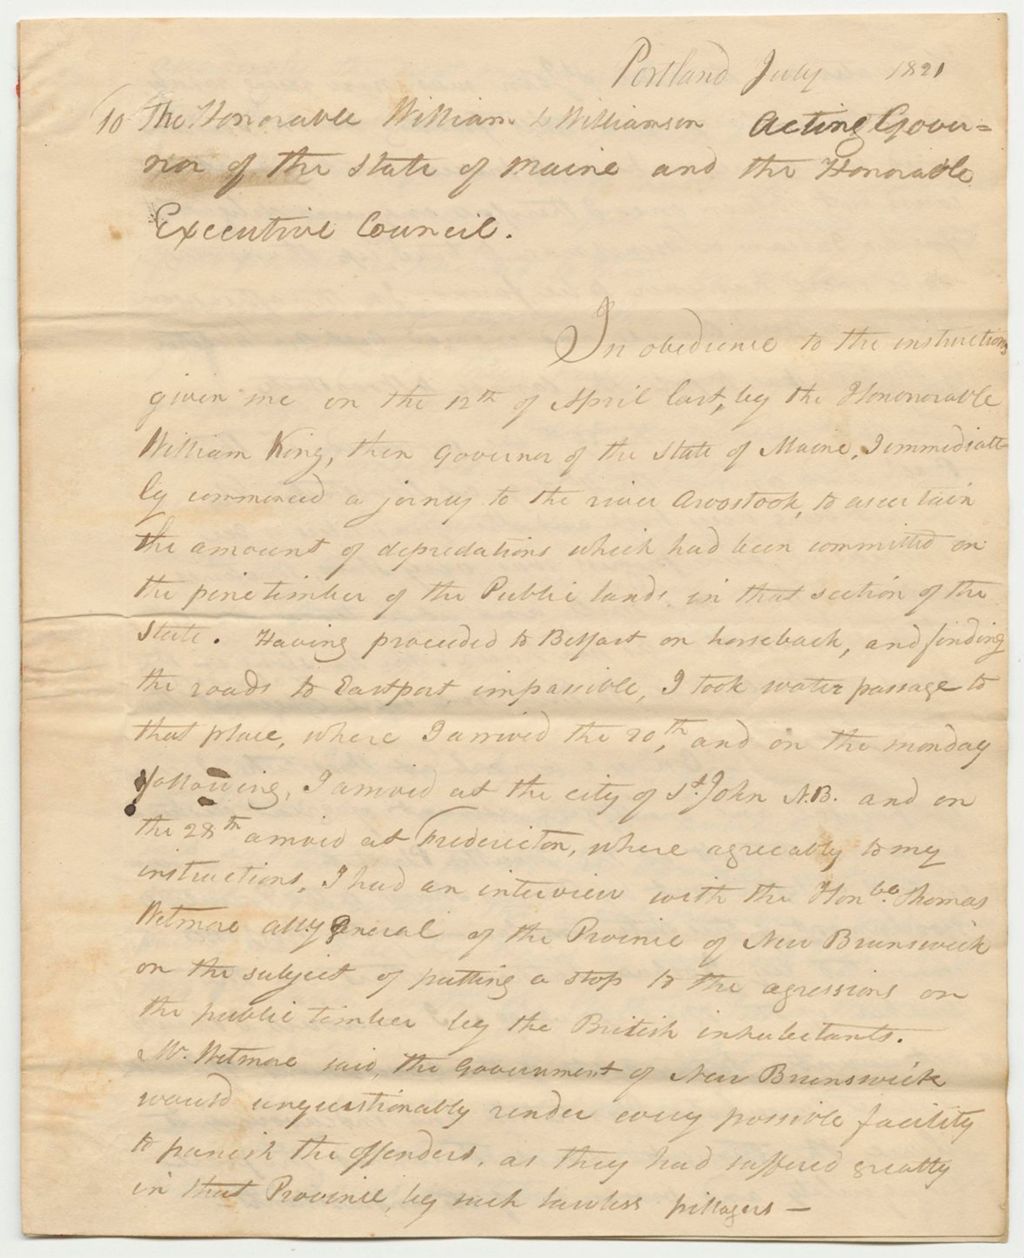 Portland July 1821
To The Honorable William D Williamson Acting Gover=
nor of the State of Maine and the Honorable
Executive Council.
In obedience to the instructions
given me on the 12th of April last, by the Hononorable
William King, then Governor of the State of Maine, I immediate
ly commenced a jorney to the river Aroostook, to ascertain
the amount of depredations which had been committed on
the pine timber of the Public lands in that section of the
State. Having proceeded to Belfast on horseback, and finding
the roads to Eastport impassible, I took water passage to
that place, where I arrived the 20th, and on the monday
following, I arrived at the city of St. John N.B. and on
the 28th arrived at Fredericton, where agreeably to my
instructions, I had an interview with the Honble. Thomas
Wetmore atty general of the Provinie of New Brunswick
on the subject of putting a stop to the agressions on
the public timber by the British inhabetants.
Mr. Wetmore said, the Government of New Brunswick
would unquestionably render every possible facility
to punish the offenders, as they had suffered greatly
in that Provinie, by such lawless pillagers —